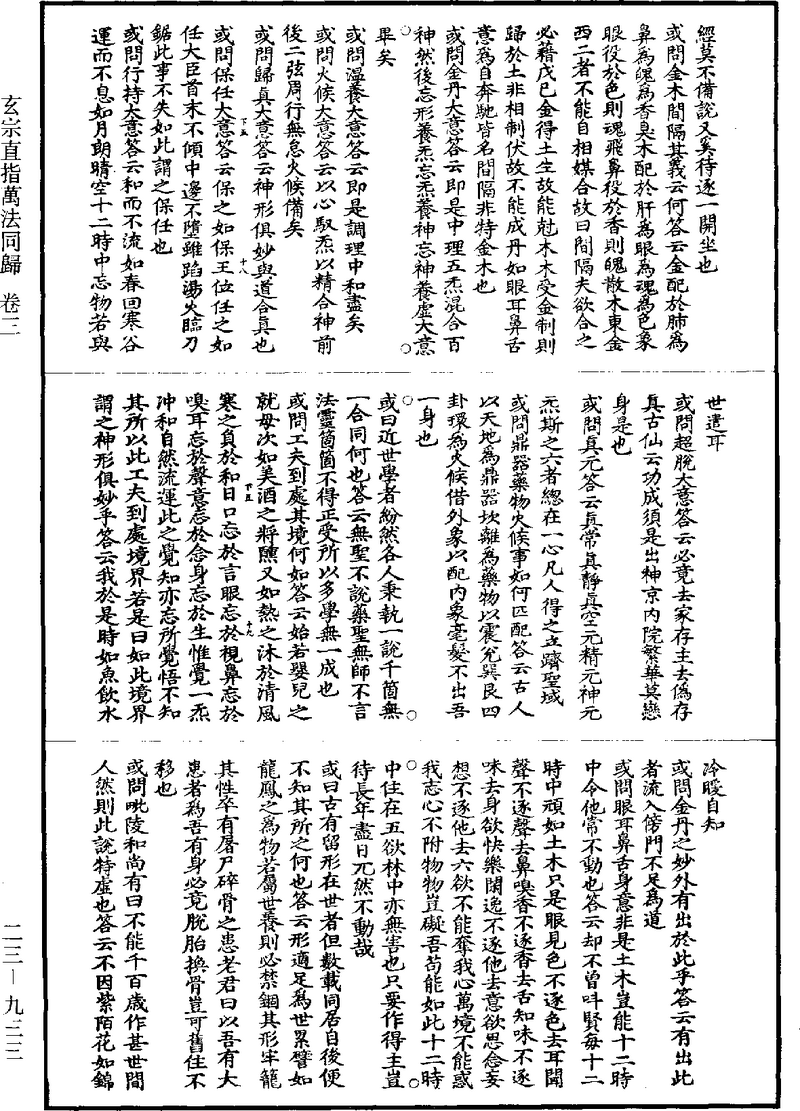 經莫不備說又奚待逐一開坐也
或問金木間隔其義云何答云金配於肺為
鼻為魄為香臭木配於肝為眼為魂為色象
眼役於色則魂飛鼻役於香則魄散木東金
西二者不能自相媒合故曰間隔夫欲合之
必藉戊己金得土生故能尅木木受金制則
歸於土非相制伏故不能成丹如眼耳鼻舌
意為自奔馳皆名間隔非特金木也
或問金丹大意答云即是中理五炁混合百
神然後忘形養炁忘炁養神忘神養虛大意
畢矣
或問溫養大意答云即是調理中和盡矣
或問火候大意答云以心馭炁以精合神前
後二弦周行無怠火候備矣
或問歸真大意答云神形俱妙與道合真也
下五 十八
或問保任大意答云保之如保王位任之如
任大臣首末不傾中邊不墮雖蹈湯火臨刀
鋸此事不失如此謂之保任也
或問行持大意答云和而不流如春回寒谷
運而不息如月朗晴空十二時中忘物若與
世遺耳
或問超脫大意答云必竟去家存主去偽存
真古仙云功成須是出神京內院繁華莫戀
身是也
或問真元答云真常真靜真空元精元神元
炁斯之六者緫在一心凡人得之立躋聖域
或問鼎器藥物火候事如何匹配答云古人
以天地為鼎器坎離為藥物以震兌巽艮四
卦環為火候借外象以配內象毫髮不出吾
一身也
或曰近世學者紛然各人秉執一說千箇無
一合同何也答云無聖不說藥聖無師不言
法靈箇箇不得正受所以多學無一成也
或問工夫到處其境何如答云始若嬰兒之
就母次如美酒之將醺又如熱之沐於清風
寒之負於和日口忘於言眼忘於視鼻忘於
下五 十九
嗅耳忘於聲意忘於念身忘於生惟覺一炁
沖和自然流運此之覺知亦忘所覺悟不知
其所以此工夫到處境界若是曰如此境界
謂之神形俱妙乎答云我於是時如魚飲水
冷暖自知
或問金丹之妙外有出於此乎答云有出此
者流入傍門不足為道
或問眼耳鼻舌身意非是土木豈能十二時
中令他常不動也答云却不曾呌賢每十二
時中頑如土木只是眼見色不逐色去耳聞
聲不逐聲去鼻嗅香不逐香去舌知味不逐
味去身欲快樂閑逸不逐他去意欲思念妄
想不逐他去六欲不能奪我心萬境不能惑
我志心不附物物豈礙吾苟能如此十二時
中住在五欲林中亦無害也只要作得主豈
待長年盡日兀然不動哉
或曰古有留形在世者但數載同居自後便
不知其所之何也答云形適足為世累譬如
龍鳳之為物若屬世養則必禁錮其形牢籠
其性卒有屠尸碎骨之患老君曰以吾有大
患者為吾有身必竟脫胎換骨豈可舊住不
移也
或問毗陵和尚有曰不能千百歲作甚世間
人然則此說特虛也答云不因紫陌花如錦
玄宗直指萬法同歸 卷三
二三－九三三